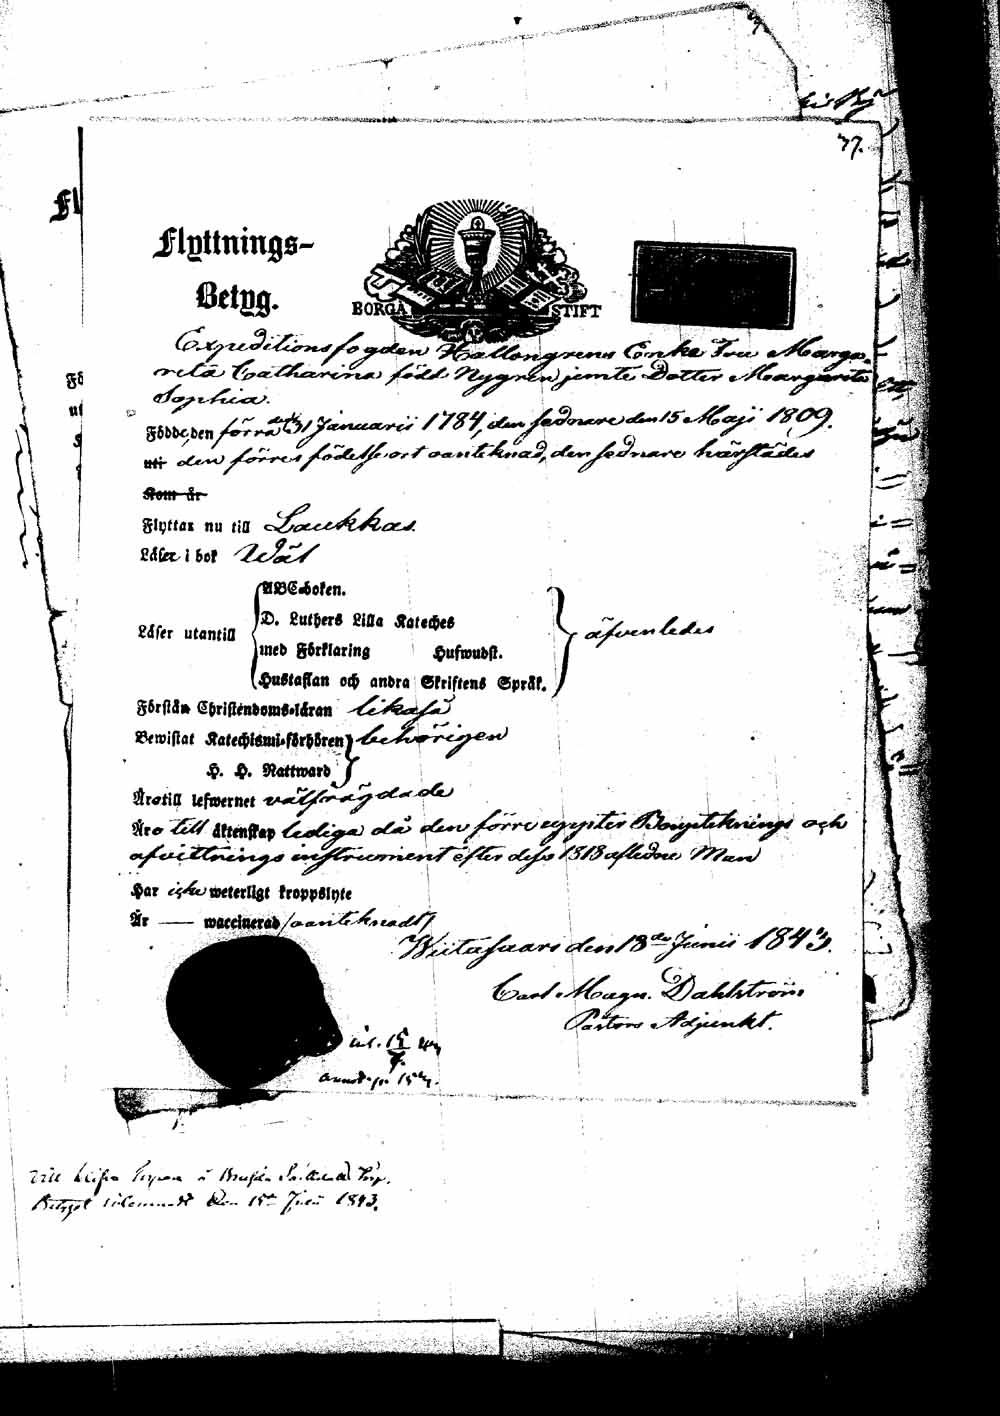 37.
Flyttnings-
Betyg.
BORGÅ STIFT
Expeditionsfogden Hallongrens Enka Fru Marga-
reta Catharina född Nygren jemte Dotter Margareta
Sophia.
Födde den förra den 31 Januarii 1784, den sednare den 15 Maji 1809.
uti den förres födelseort oanteknad, den sednare härstädes
Kom år
Flyttar nu till Laukkas.
Läser i bok Wäl
ABC-boken.
D. Luthers Lilla Kateches
Läser utantill äfvenledes
med Förklaring Hufwudst.
Hustaflan och andra Skriftens Språk.
Förstån Christendoms-läran likaså
Bewistat Katechismi-förhören behörigen
H. H. Nattward
Äro till lefwernet välfrägdade
Äro till äktenskap lediga då den förre egypter Bouppteknings och
afvittrings instrument efter dess 1818 aflidne Man
Har icke weterligt kroppslyte
Är — waccinerad /oanteknadt/
Wiitasaari den 18de Junii 1843.
Carl Magn. Dahlström
Pastors Adjunkt.
15
7
Betyget den 15de Julii 1843.